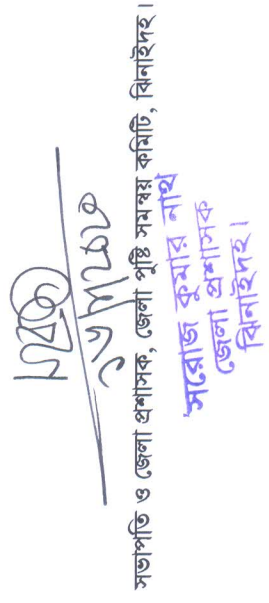 সভাপতি ও জেলা প্রশাসক, জেলা পুষ্টি সমন্বয় কমিটি, ঝিনাইদহ।
সরোজ কুমার নাথ
জেলা প্রশাসক
ঝিনাইদহ।